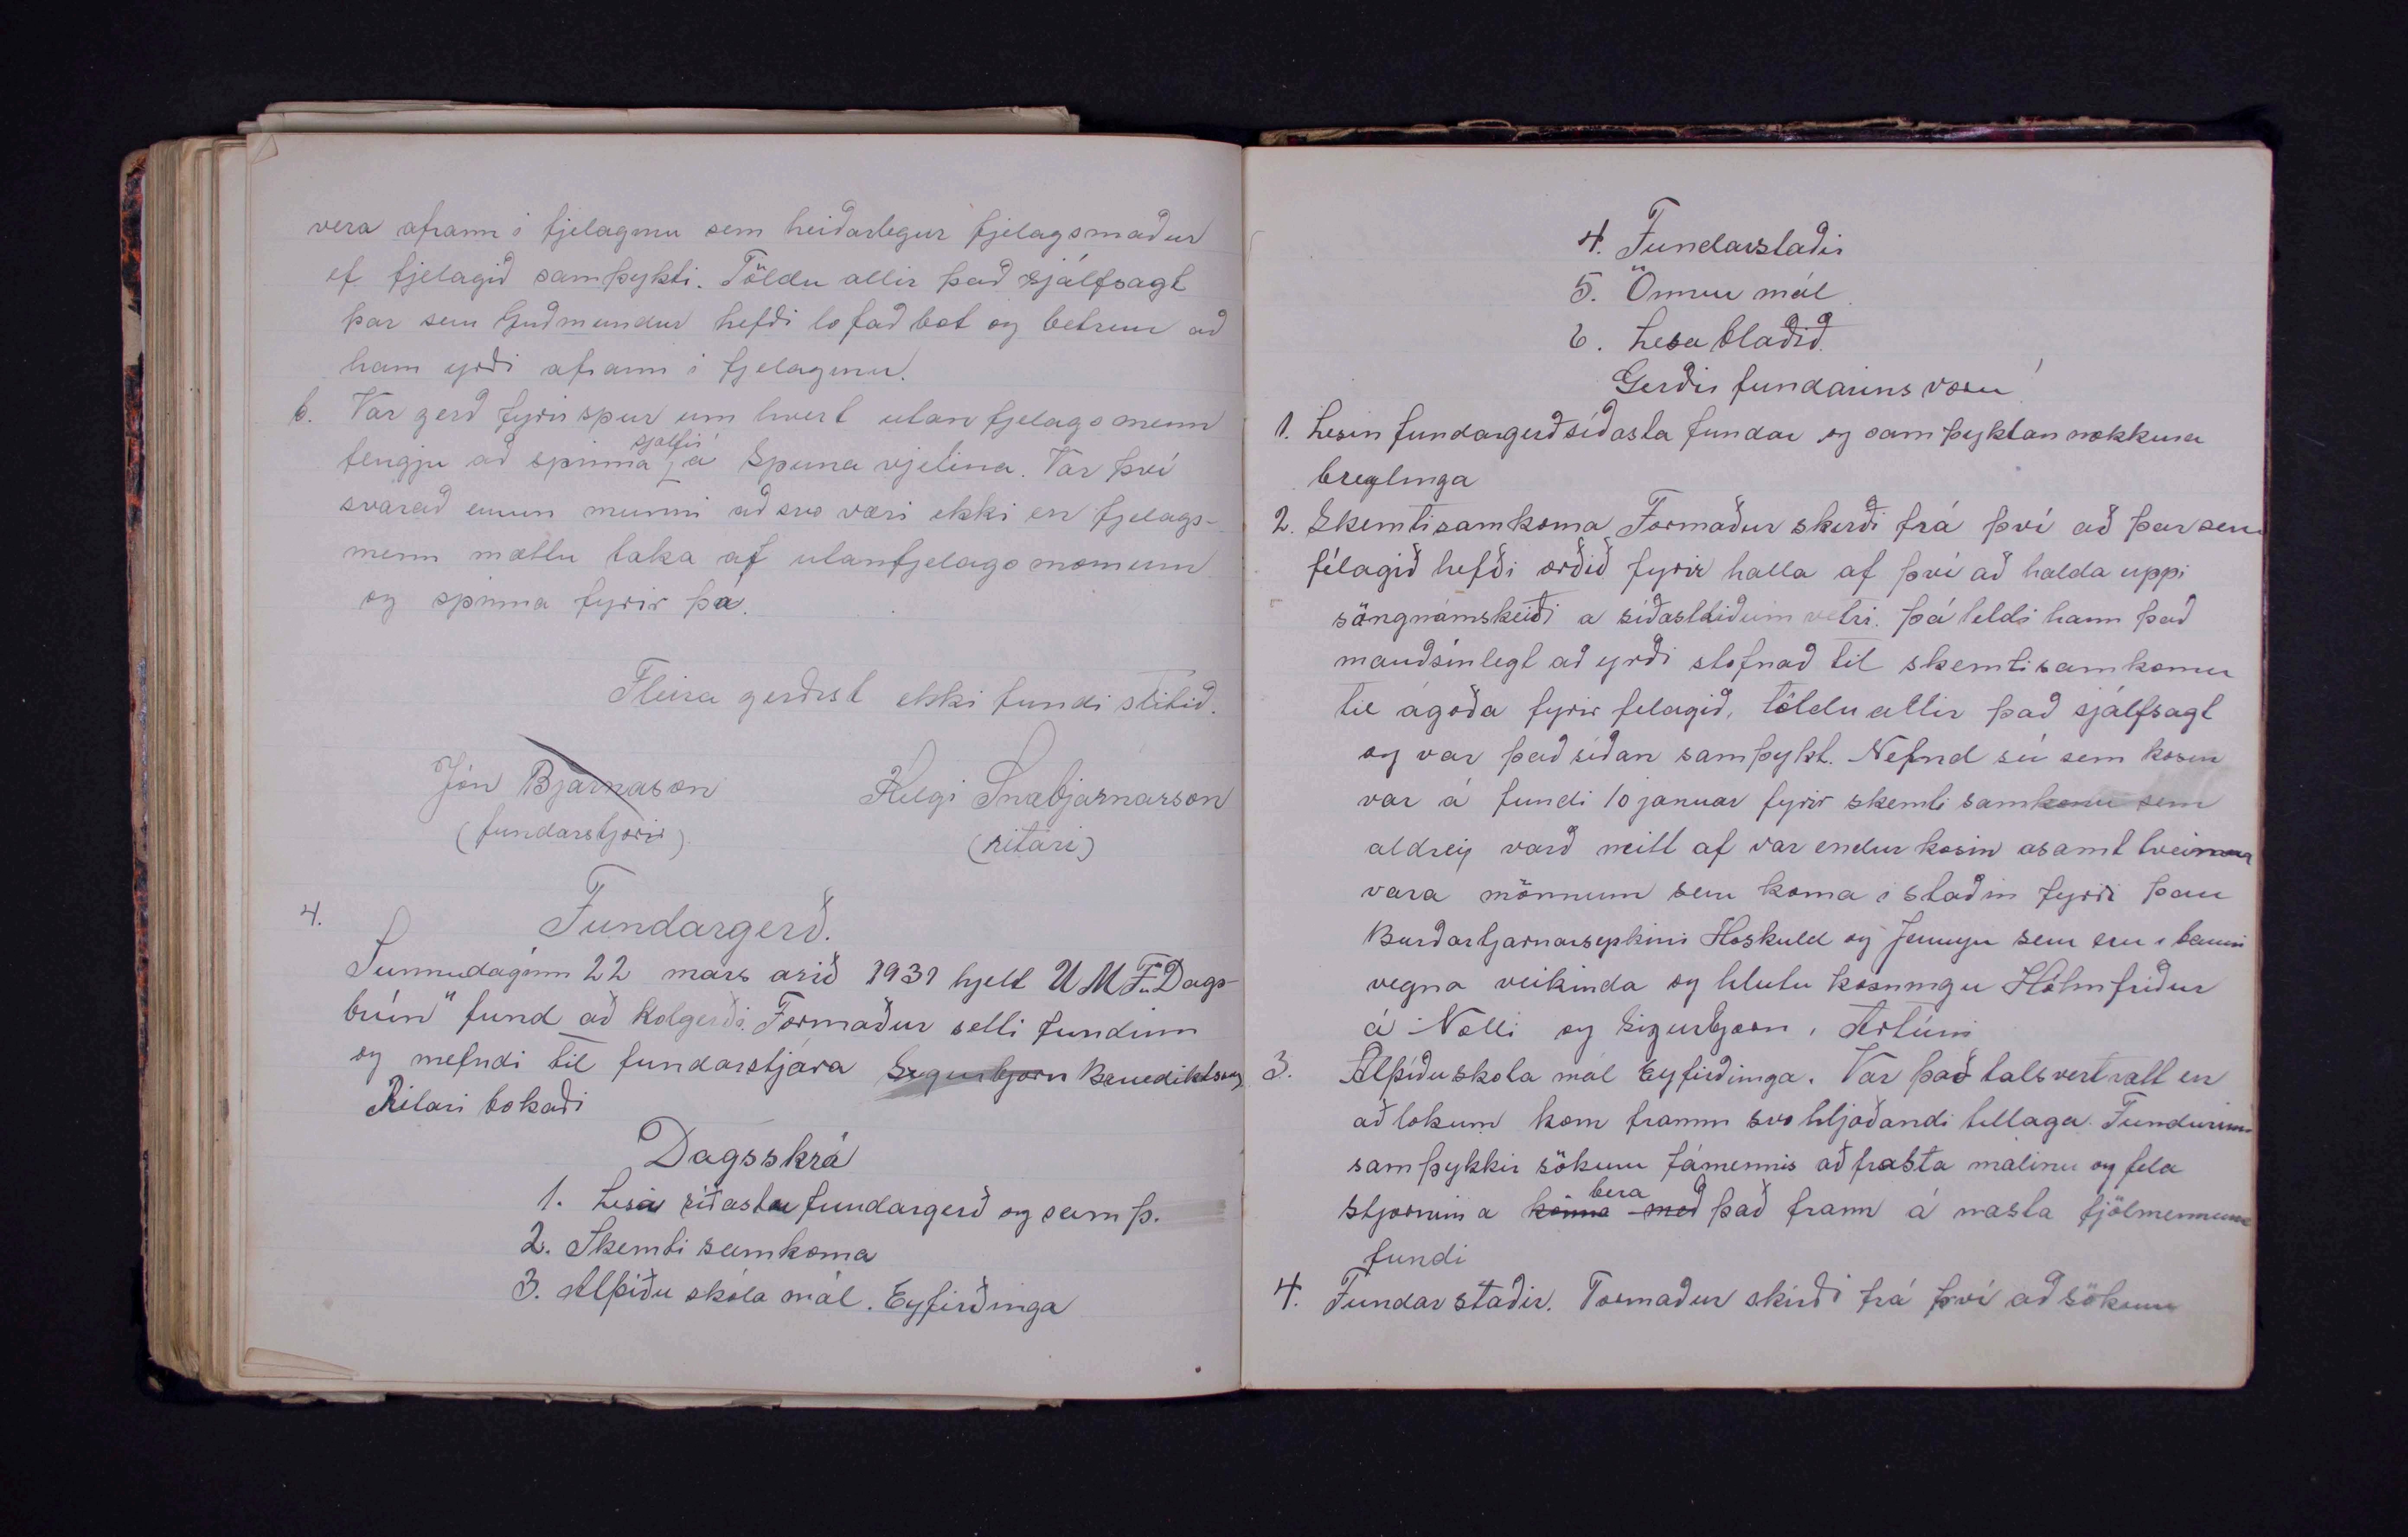 vera afram i fjelaginu sem heiðarlegur fjelagsmaður
ef fjelagið samþykti. Töldu allir það sjálfsagt
þar sem Guðmundur hefði lofað bót og betrun að
hann yrði afram i fjelaginu.
6. Var gerð fyrirspur um hvert utan fjelags menn
fengju að spinna sjalfir á Spuna vjelina. Var því
svarað einum munni að svo væri ekki en fjelags-
menn mættu taka af utanfjelags monnum
og spinna fyrir þa.
Fleira gerðist ekki fundi slitið.
Jón Bjarnason
(fundarstjori)
Helgi Snæbjarnarson
(ritari)
4.
Fundargerð.
Sunnudaginn 22 mars arið 1931 hjelt U M F. „Dags-
brún" fund að Kolgerði. Formaður setti fundinn
og nefndi til fundarstjóra Sigurbjorn Benediktsson
Ritari bokaði
Dagsskrá
1. Lesin siðasta fundargerð og samþ.
2. Skemti samkoma
3. Alþiðu skóla mál. Eyfirðinga
4. Fundarstaðir
5. Önnur mál.
6. Lesa blaðið.
Gerðir fundarins voru
1. Lesin fundargerð síðasta fundar og samþyktan nokkura
breytinga
2. Skemtisamkoma Formaður skirði frá því að þar sem
félagið hefði orðið fyrir halla af því að halda uppi
söngnámskeiði a siðastliðum vetri. þá teldi hann það
nauðsinlegt að yrði stofnað til skemtisamkomu
til ágoða fyrir felagið. töldu allir það sjálfsagt
og var það siðan samþykt. Nefnd sú sem kosin
var á fundi 10 januar fyrir skemti samkomu sem
aldreij varð neitt af var endur kosin asamt tveimur
vara mönnum sem koma i staðin fyrir þau
Hoskuld og Jennyu sem eru i banni
vegna veikinda og hlutu kosningu Hólmfriður
á Nolli og Sigurbjorn i Artúni
3. Alþiðuskola mál Eyfirðinga. Var það talsvert rætt en
að lokum kom framm svo hljoðandi tillaga. Fundurinn
samþykkir sökum fámennis að frasta málinu og fela
stjorninn a koma með bera það fram á næsta fjölmennum
fundi
4. Fundar staðir. Formaður skirði frá því að sökum